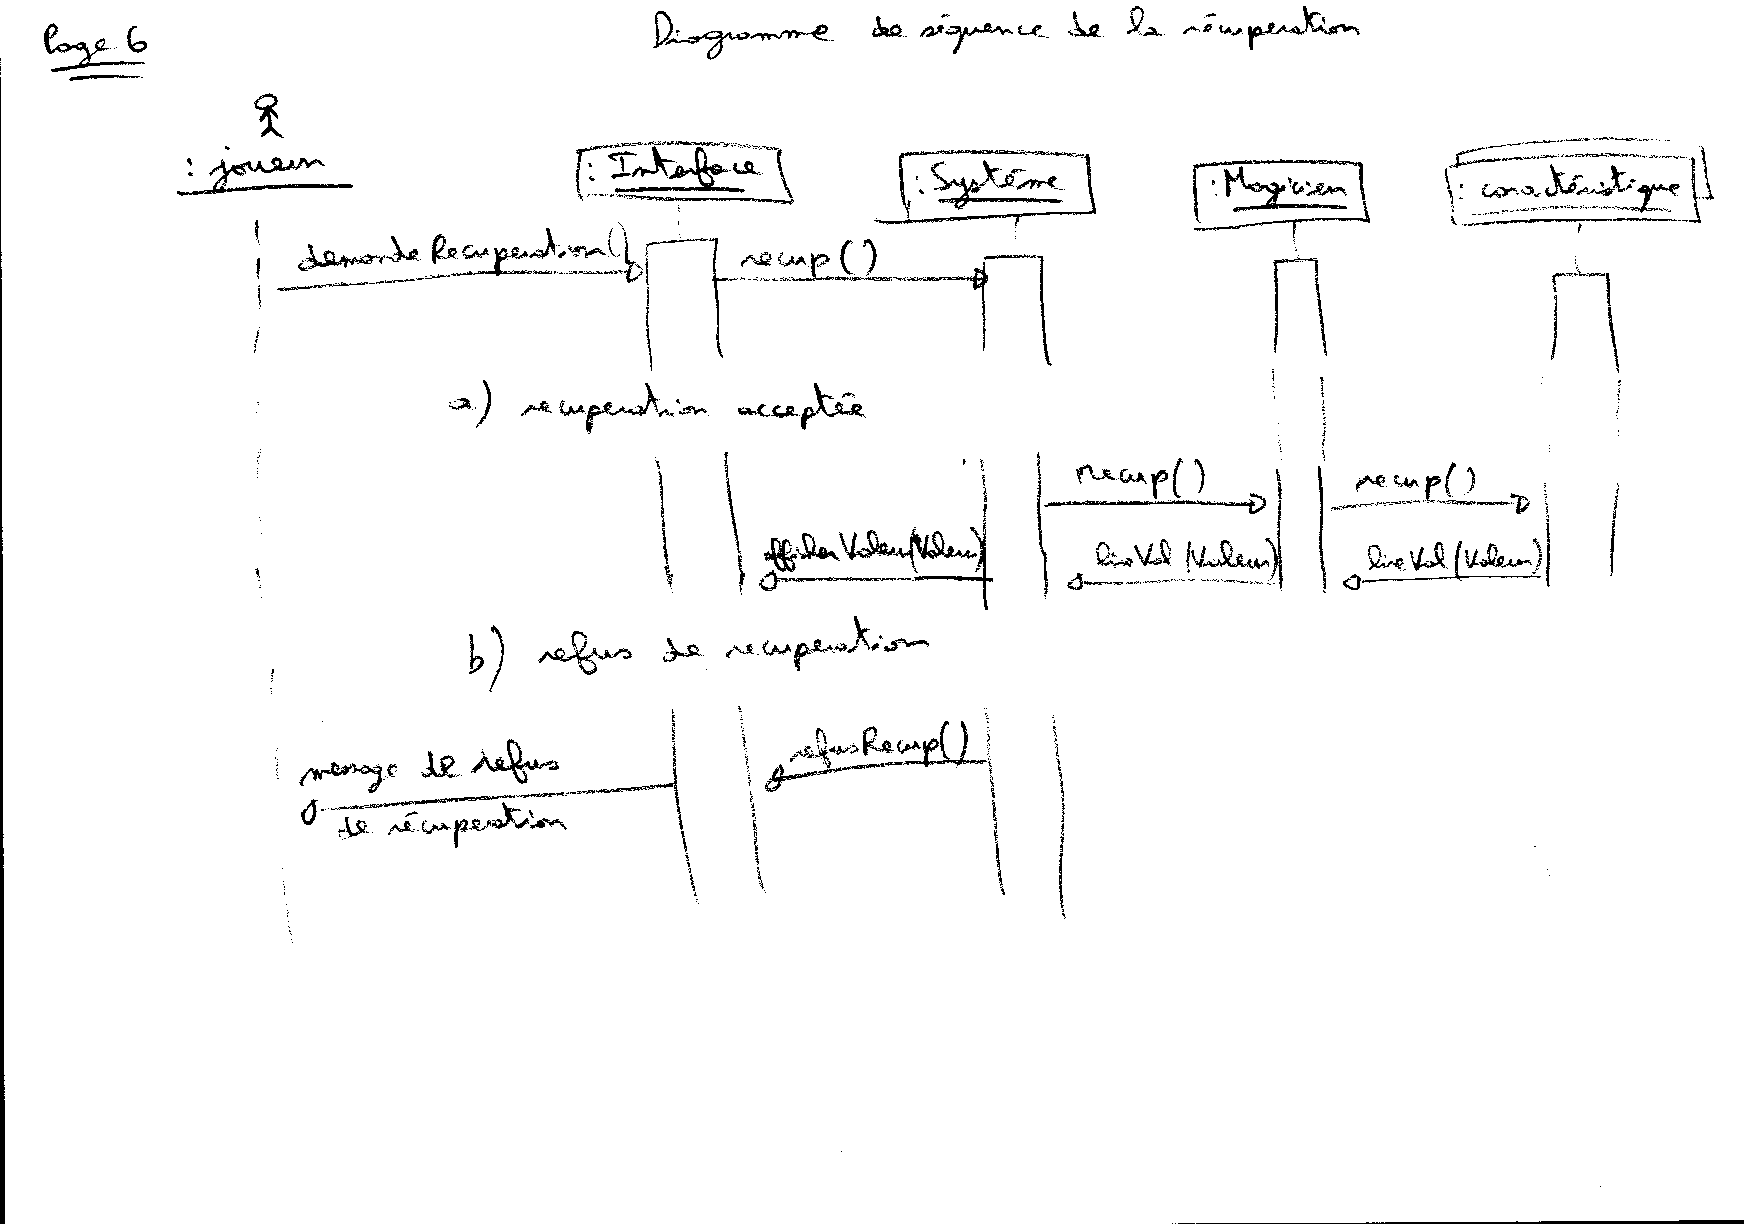 Page 6
Diagramme de séquence de la récuperation
: joueur
: Interface
: Système
: Magicien
: caractéristique
demandeRecuperation()
recup()
a) recuperation acceptée
recup()
recup()
afficherValeur(Valeur)
lireVal(Valeur)
lireVal(Valeur)
b) refus de recuperation
refusRecup()
message de refus
de récuperation